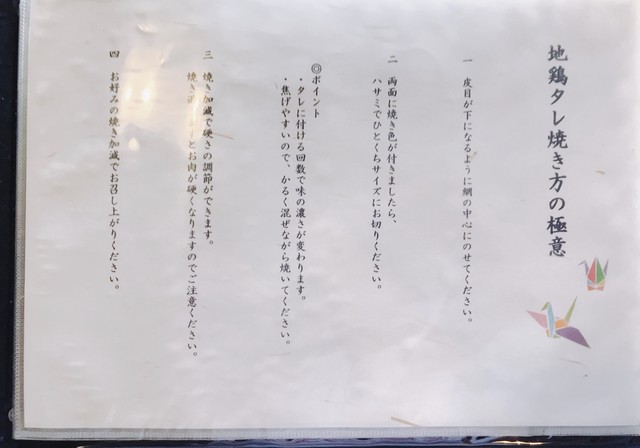 地鶏タレ焼き方の極意
一 皮目が下になるように網の中心にのせてください。
二 両面に焼き色が付きましたら、
ハサミでひとくちサイズにお切りください。
◎ポイント
・タレに付ける回数で味の濃さが変わります。
・焦げやすいので、かるく混ぜながら焼いてください。
三 焼き加減で硬さの調節ができます。
焼き とお肉が硬くなりますのでご注意ください。
四 お好みの焼き加減でお召し上がりください。